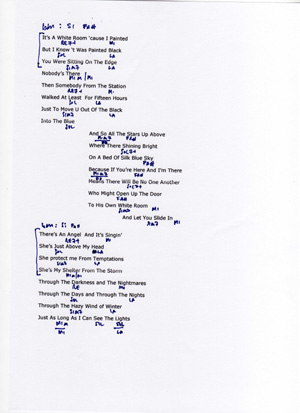 Intro: SI FA#
It's A White Room 'cause I Painted
RE7+ MI
But I Know 't Was Painted Black
SOL LA
You Were Sitting On The Edge
SIm7 LA
Nobody's There
MIm / MI
Then Somebody From The Station
RE7+ MI
Walked At Least For Fifteen Hours
SOL LA
Just To Move U Out Of The Black
SIm7 LA
Into The Blue
SOL
And So All The Stars Up Above
FA#
Where There Shining Bright
SOL7+
On A Bed Of Silk Blue Sky
FA#
Because If You're Here And I'm There
MIm7 FA#
Means There Will Be No One Another
SOL7+
Who Might Open Up The Door
FA#
To His Own White Room
SIm7 MI
And Let You Slide In
SIm7 MI
There's An Angel And It's Singin'
RE7+ MI
She's Just Above My Head
SOL LA
She protect me From Temptations
SIm7 LA
She's My Shelter From The Storm
MIm/MI
Through The Darkness and The Nightmares
RE MI
Through The Days and Through The Nights
SOL LA
Through The Hazy Wind of Winter
SIm7 LA
Just As Long As I Can See The Lights
MIm SOL
MI LA